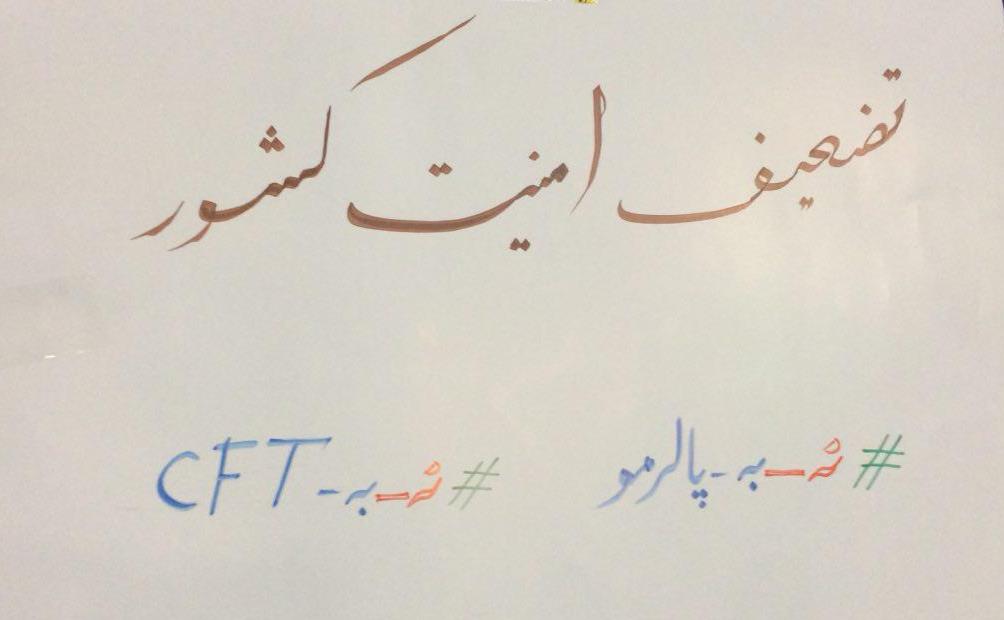 تضعیف امنیت کشور
#نه_به_پالرمو #نه_به_CFT